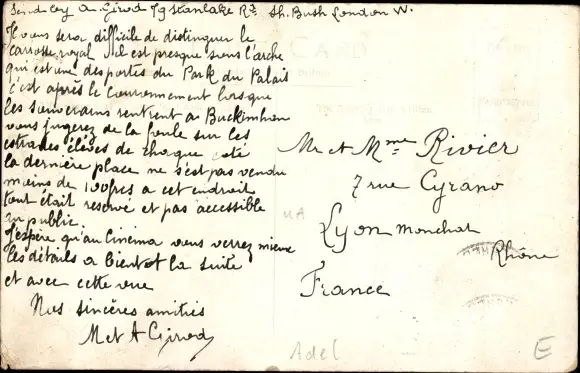 Send by A. Girod 79 Stanlake Rd. Sh. Bush London W.
Il vous sera difficile de distinguer le
carrosse royal il est presque sous l'arche
qui est une des portes du Park du Palais
c'est après le Couronnement lorsque
les souverains rentrent à Buckimham
vous jugerez de la foule sur les
estrades élevées de chaque coté
la dernière place ne s'est pas vendu
moins de 100frcs a cet endroit
tout était reservé et pas accessible
au public.
J'espère qu'au Cinéma vous verrez mieux
les détails a bientot la suite
et avec cette vue
Nos sincères amitiés
M et A Girod
Mr et Mme Rivier
7 rue Cyrano
Lyon Monchat
Rhône
France
UA
Adel
E